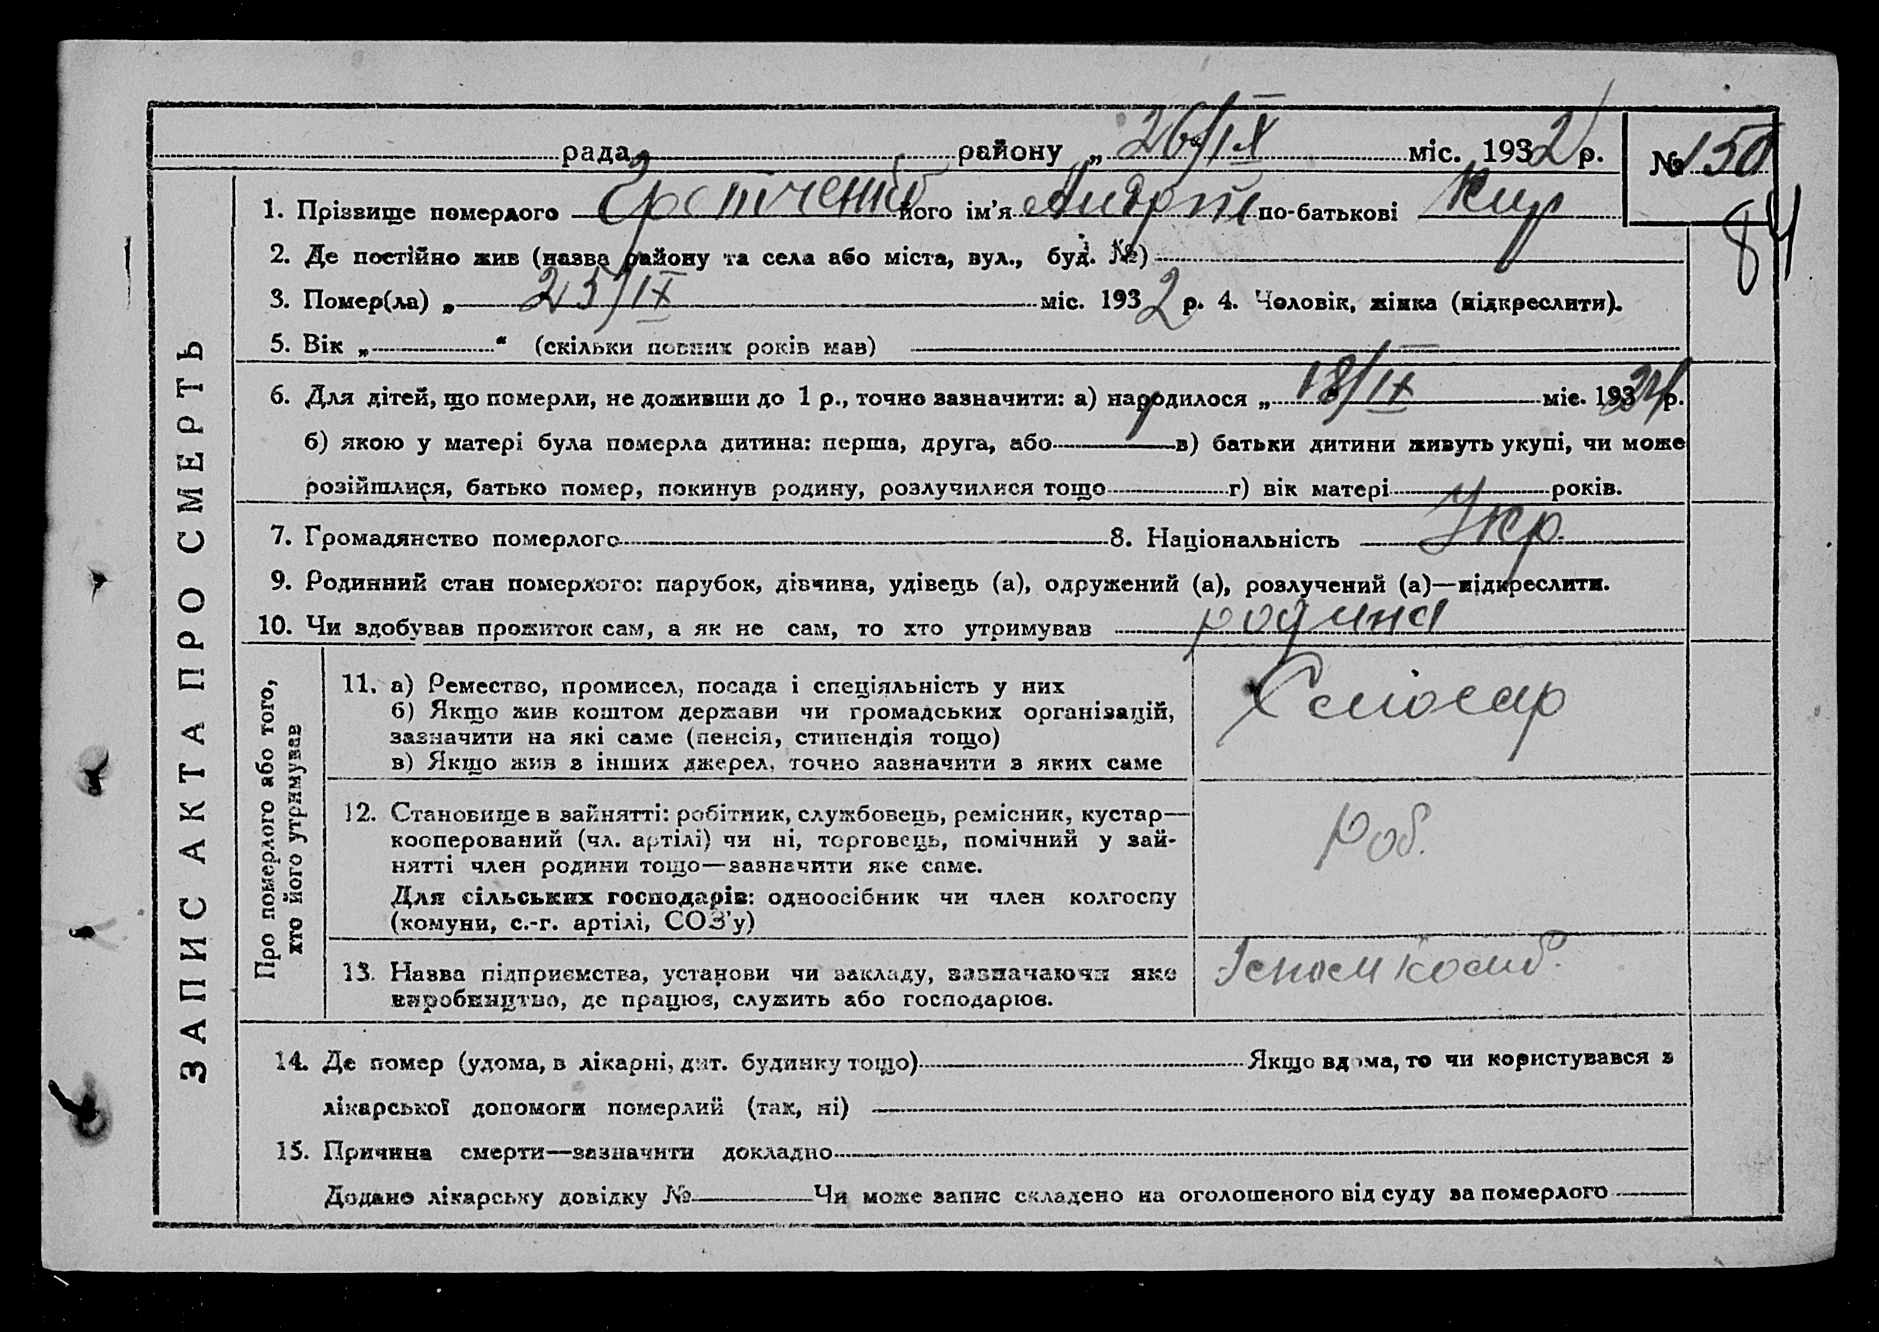 рада района „ 26/IX міс. 1932 р. № 150
1. Прізвище померлого його ім'я Андрій по-батькові Кир
84
2. Де постійно жив (назва району та села або міста, вул., буд. №)
3. Помер(ла) „ 25/IX міс. 1932 р. 4. Чоловік, жінка (підкреслити).
5. Вік „ “ (скільки повних років мав)
6. Для дітей, що померли, не доживши до 1 р., точно зазначити: а) народилося „ 18/IX міс. 193 р.
б) якою у матері була померла дитина: перша, друга, або в) батьки дитини живуть укупі, чи може
розійшлися, батько помер, покинув родину, розлучилися тощо г) вік матері років.
7. Громадянство померлого 8. Національність Укр.
9. Родинний стан померлого: парубок, дівчина, удівець (а), одружений (а), розлучений (а)—підкреслити.
10. Чи здобував прожиток сам, а як не сам, то хто утримував родина
11. а) Ремество, промисел, посада і спеціяльність у них
б) Якщо жив коштом держави чи громадських організацій,
зазначити на які саме (пенсія, стипендія тощо)
в) Якщо жив з інших джерел, точно зазначити з яких саме
слюсар
12. Становище в зайнятті: робітник, службовець, ремісник, кустар—
кооперований (чл. артілі) чи ні, торговець, помічний у зай-
нятті член родини тощо—зазначити яке саме.
Для сільських господарів: одноосібник чи член колгоспу
(комуни, с.-г. артілі, СОЗ'у)
Роб.
13. Назва підприємства, установи чи закладу, зазначаючи яке
виробництво, де працює, служить або господарює.
14. Де помер (удома, в лікарні, дит. будинку тощо) Якщо вдома, то чи користувався з
лікарської допомоги померлий (так, ні)
15. Причина смерти—зазначити докладно
Додано лікарську довідку № Чи може запис складено на оголошеного від суду за померлого
ЗАПИС АКТА ПРО СМЕРТЬ
Про померлого або того,
хто його утримував